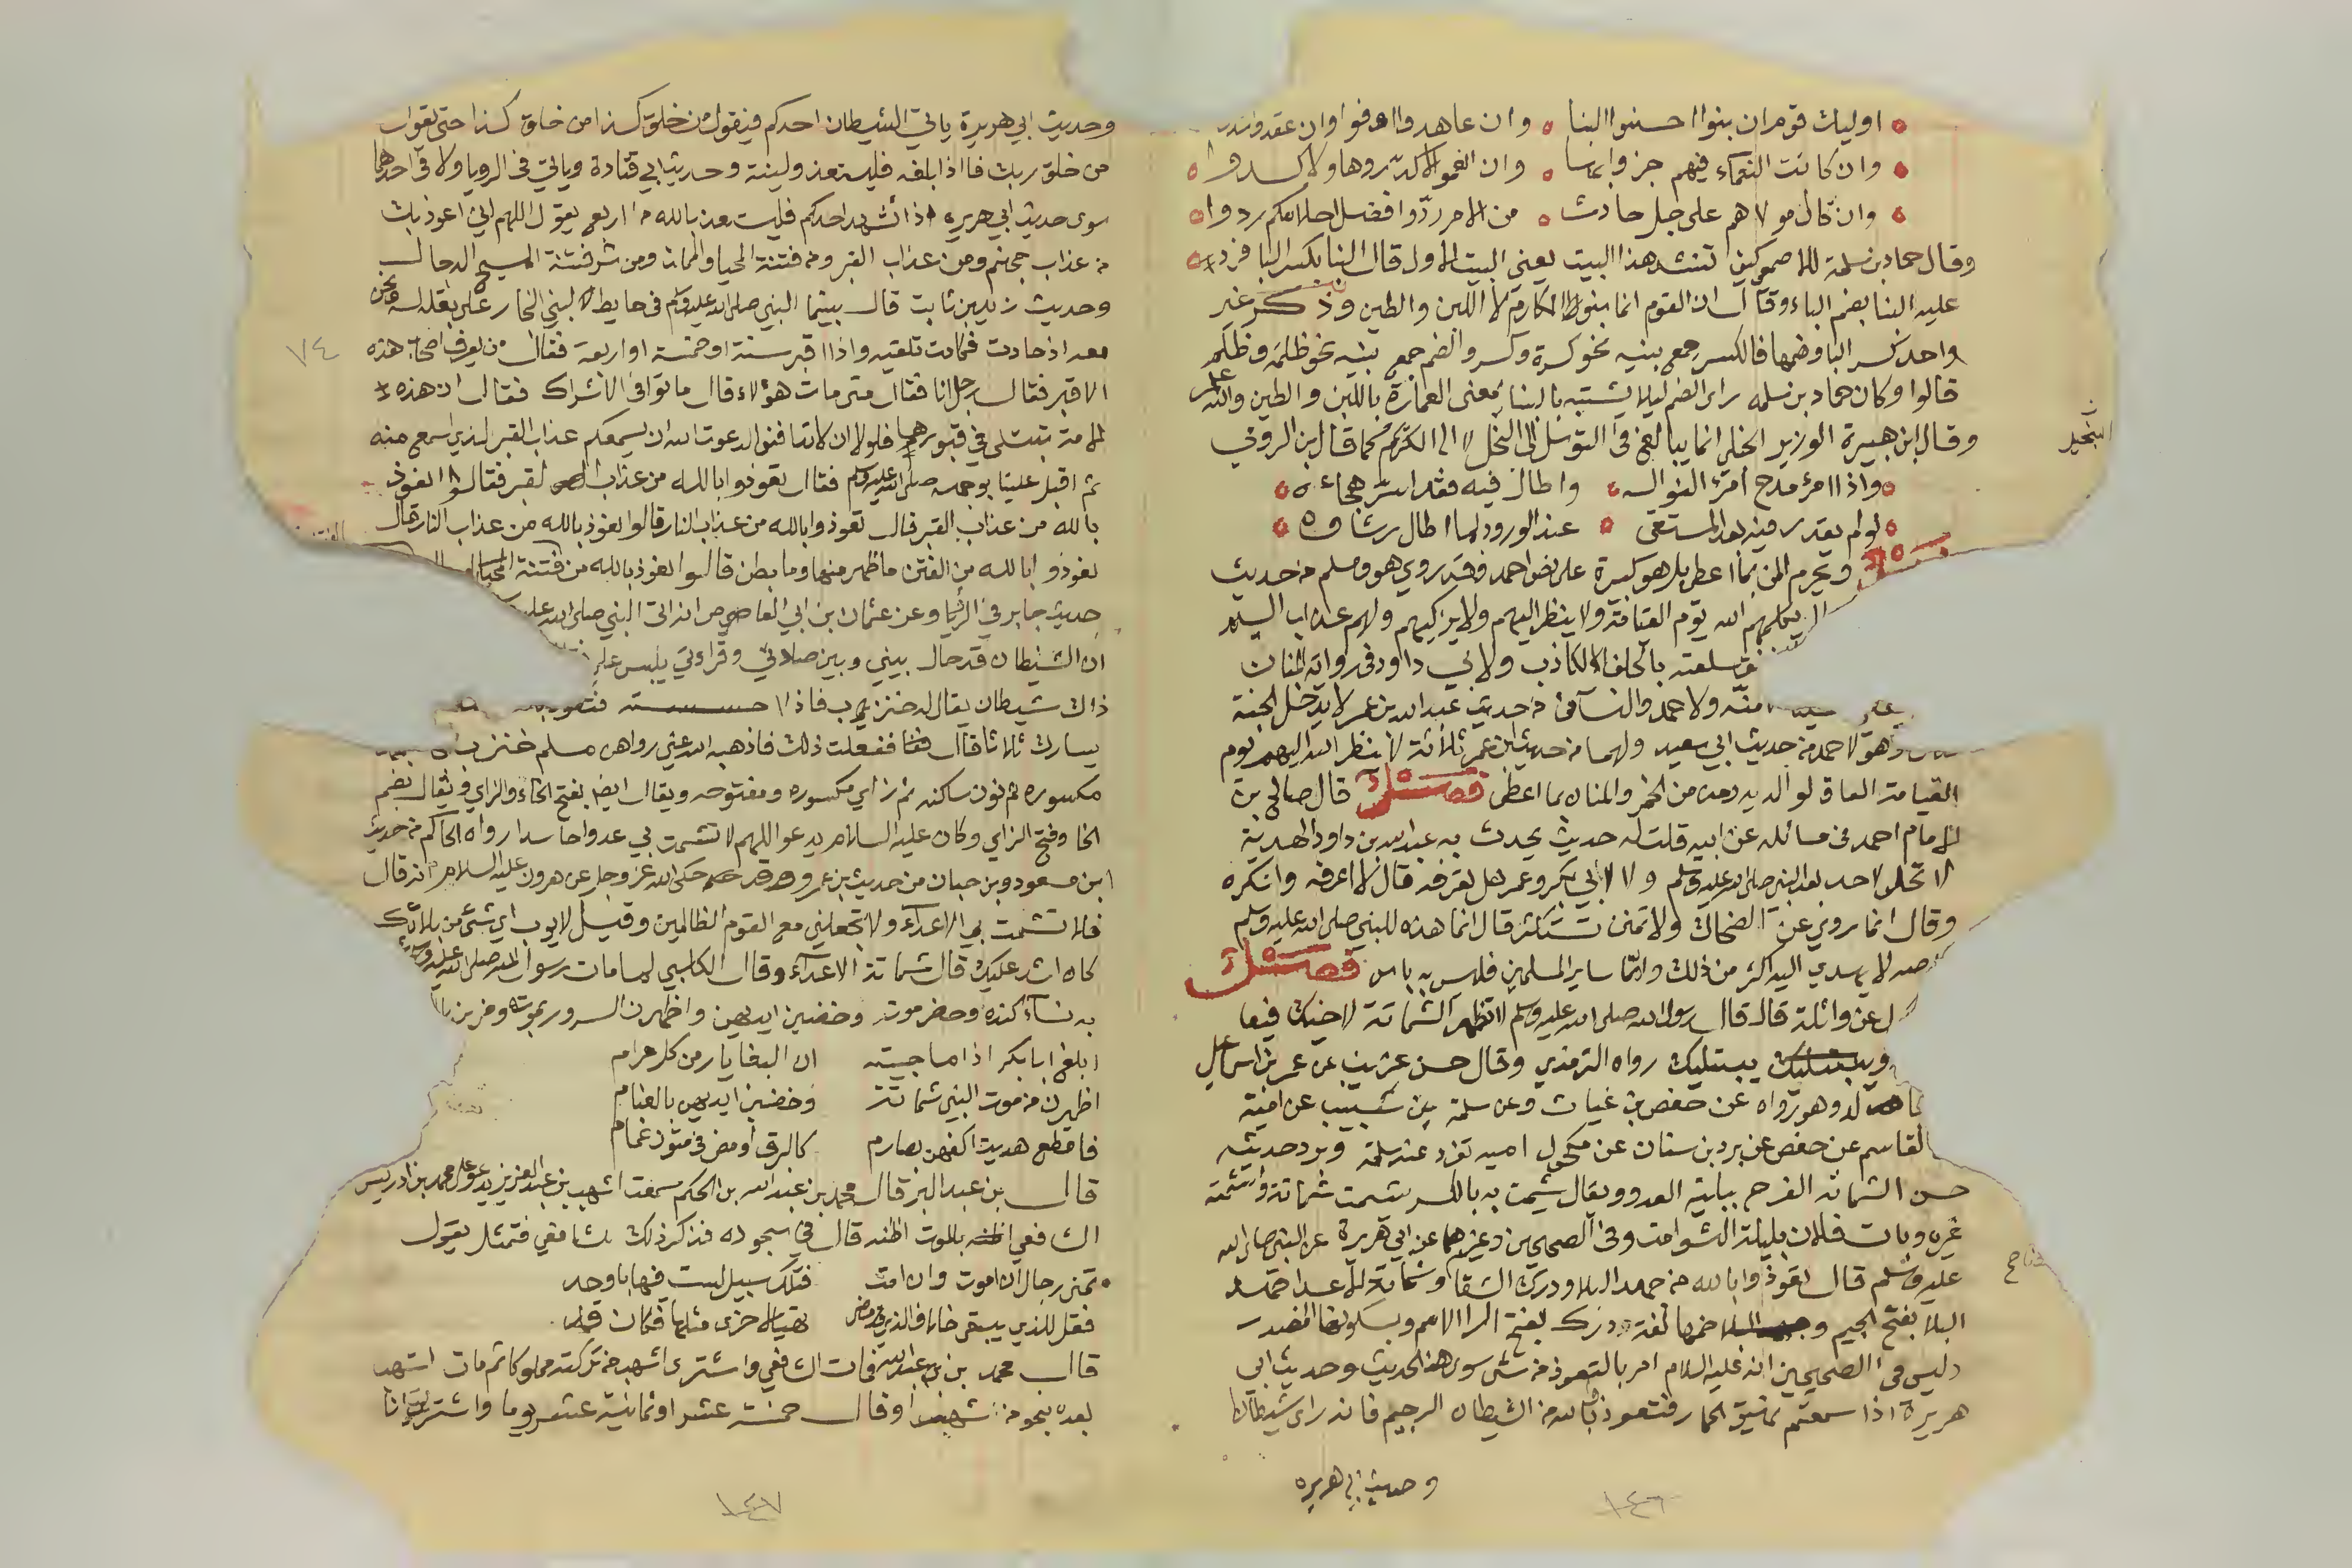 اوليك قوم ان بنوا احسنوا البنا وان عاهدوا اوفوا وان عقدوا شدوا
وان كانت النعماء فيهم جزوا بها وان انعموا لا كدروها ولا كدوا
وان قال مولاهم على جل حادث من الامر ردوا فضل احلامكم ردوا
وقال حماد بن سلمة للاصمعي كيف تنشد هذا البيت يعني البيت الاول قال البنا بكسر البا فرد
عليه البنا بضم الباء وقال ان القوم انما بنوا المكارم لا اللبن والطين وذكر غير
واحد كسر البا وضمها فالكسر جمع بنيه نحو كسرة وكسر والضم جمع بنيه نحو ظلمة وظلم
قالوا وكان حماد بن سلمه راى الضم ليلا يشتبه بالبنا بمعنى العمارة باللبن والطين والله اعلم
وقال ابن هبيرة الوزير الحنبلي انما يبالغ في التوسل الى البخيل لا الى الكريم كما قال ابن الرومي
واذا امرؤ مدح امرأ لنواله واطال فيه فقد اسر هجاءه
لو لم يقدر فيه بعد المستقى عند الورود لما اطال رشاوه
فصل ويحرم المن بما اعطى بل هو كبيرة على نص احمد وقد روى هو ومسلم من حديث
لا يكلمهم الله يوم القيامة ولا ينظر اليهم ولا يزكيهم ولهم عذاب اليم
سلعته بالحلف الكاذب ولابي داود في رواية المنان
منه ولاحمد والنسائي من حديث عبد الله بن عمر لا يدخل الجنة
وهو لاحمد من حديث ابي سعيد ولهما من حديث ابن عمر ثلاثة لا ينظر الله اليهم يوم
القيامة العاق لوالديه ومدمن الخمر والمنان بما اعطى فصل قال صالح بن
الامام احمد في مسائله عن ابيه قلت له حديث يحدث به عبد الله بن داود الهدية
لا تحل لاحد بعد النبي صلى الله عليه وسلم ولا لابي بكر وعمر هل تعرفه قال لا اعرفه وانكره
وقال انما روي عن الضحاك ولا تمنن تستكثر قال انما هذه للنبي صلى الله عليه وسلم
لا يهدي اليه اكثر من ذلك واما ساير المسلمين فليس به باس فصل
عن واثلة قال قال رسول الله صلى الله عليه وسلم لا تظهر الشماتة لاخيك فيعا
ويبتليك رواه الترمذي وقال حسن غريب عن عمر بن اسماعيل
وهو رواه عن حفص بن غياث وعن سلمة بن شبيب عن امية
القاسم عن حفص عن برد بن سنان عن مكحول امية تفرد عنه سلمة وبرد حديثه
حسن الشماتة الفرح ببلية العدو ويقال شمت به بالكسر يشمت شماتة واشمته
غيره وبات فلان بليلة الشوامت وفي الصحيحين وغيرهما عن ابي هريرة عن النبي صلى الله
عليه وسلم قال تعوذوا بالله من جهد البلاء ودرك الشقا وشماتة الاعدا جهد
البلا بفتح الجيم وضمها لغة ودرك بفتح الرا الاسم وبسكونها المصدر
وليس في الصحيحين انه عليه السلام امر بالتعوذ من شي سوى هذا الحديث وحديث ابي
هريرة اذا سمعتم نهيق الحمار فتعوذوا بالله من الشيطان الرجيم فانه راى شيطانا
وحديث ابي هريره
١٤٦
وحديث ابي هريرة ياتي الشيطان احدكم فيقول من خلق كذا من خلق كذا حتى يقول
من خلق ربك فاذا بلغه فليستعذ ولينته وحديث ابي قتادة وياتي في الرويا ولا في احدهما
سوى حديث ابي هريرة اذا تشهد احدكم فليستعذ بالله من اربع يقول اللهم اني اعوذ بك
من عذاب جهنم ومن عذاب القبر ومن فتنة المحيا والممات ومن شر فتنة المسيح الدجال
وحديث زيد بن ثابت قال بينما النبي صلى الله عليه وسلم في حايط لبني النجار على بغلة له ونحن
معه اذ حادت فكادت تلقيه واذا اقبر ستة او خمسة او اربعة فقال من يعرف اصحاب هذه
٧٤
الاقبر فقال رجل انا فقال متى مات هؤلاء قال ماتوا في الاشراك فقال ان هذه
الامة تبتلى في قبورها فلولا ان لا تدافنوا لدعوت الله ان يسمعكم عذاب القبر الذي اسمع منه
ثم اقبل علينا بوجهه صلى الله عليه وسلم فقال تعوذوا بالله من عذاب القبر فقالوا نعوذ
بالله من عذاب القبر قال تعوذوا بالله من عذاب النار قالوا نعوذ بالله من عذاب النار قال
تعوذوا بالله من الفتن ما ظهر منها وما بطن قالوا نعوذ بالله من فتنة المحيا
حديث جابر في الرؤيا وعن عثمان بن ابي العاص انه اتى النبي صلى الله عليه
ان الشيطان قد حال بيني وبين صلاتي وقراءتي يلبس علي
ذاك شيطان يقال له خنزب فاذا فتعوذ
يسارك ثلاثا قال ففعلت ذلك فاذهبه الله عني رواهن مسلم خنزب
مكسوره ثم نون ساكنه ثم زاي مكسوره ومفتوحه ويقال ايضا بفتح الخاء والزاي ويقال بضم
الخا وفتح الزاي وكان عليه السلام يدعو اللهم لا تشمت بي عدوا حاسدا رواه الحاكم من حديث
ابن مسعود وبن حبان من حديث بن عمر وقد حكى الله عز وجل عن هرون عليه السلام انه قال
فلا تشمت بي الاعداء ولا تجعلني مع القوم الظالمين وقيل لايوب اي شئ من بلائك
كان اشد عليك قال شماتة الاعداء وقال الكلبي لما مات رسول الله صلى الله عليه وسلم
به نساء كنده وحضرموت وخضبن ايديهن واظهرن السرور بموته وضربن
ابلغ ابا بكر اذا ما جيته ان البغايا رمن كل مرام
اظهرن من موت النبي شماتة وخضبن ايديهن بالعنام
فاقطع هديت اكفهن بصارم كالبرق اومض في متون غمام
قال بن عبد البر قال محمد بن عبد الله بن الحكم سمعت اشهب بن عبد العزيز يدعو على محمد بن ادريس
الشافعي بالموت اظنه قال في سجوده فذكر ذلك للشافعي فتمثل يقول
تمنى رجال ان اموت وان امت فتلك سبيل لست فيها باوحد
فقل للذي يبقى خلاف الذي مضى تهيا لاخرى مثلها فكان قد
قال محمد بن عبد الله فمات الشافعي واشترى اشهب من تركته مملوكا ثم مات اشهب
بعده بنحو من شهر او قال خمسة عشر او ثمانية عشر يوما واشتريته انا
١٤٧